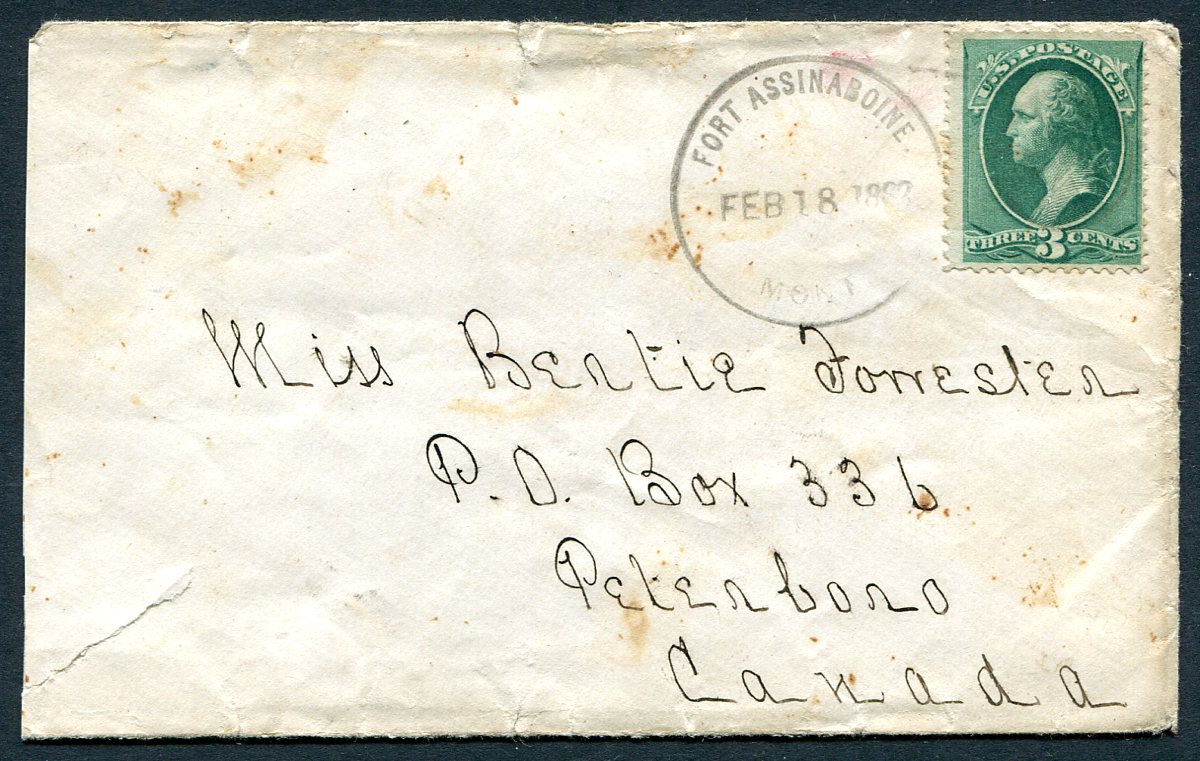 FORT ASSINABOINE
FEB 18
MONT
U.S. POSTAGE
THREE 3 CENTS
Miss Bertie Forrester
P.O. Box 336
Peterboro
Canada